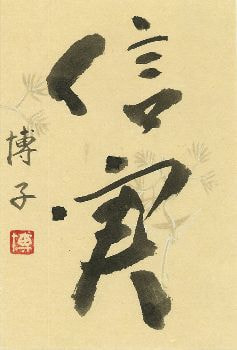 信実
博子
博